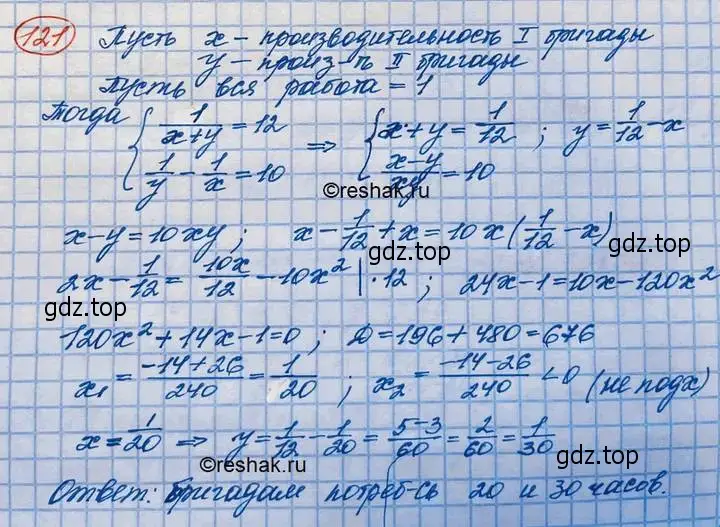 121 Пусть x – производительность I бригады
y – произ-ть II бригады
Пусть вся работа = 1
Тогда { 1/(x+y) = 12 ⇒ { x+y = 1/12 ; y = 1/12 - x
1/y - 1/x = 10 (x-y)/xy = 10
©reshak.ru
x-y=10xy; x - 1/12 + x = 10x(1/12 - x)
gdz.top gdz.top
2x - 1/12 = 10x/12 - 10x² |·12 ; 24x-1=10x-120x²
gdz.top gdz.top
120x²+14x-1=0; D=196+480=676
x₁ = (-14+26)/240 = 1/20 ; x₂ = (-14-26)/240 <0 (не подх)
x = 1/20 ⇒ y = 1/12 - 1/20 = (5-3)/60 = 2/60 = 1/30
©reshak.ru
Ответ: бригадам потреб-сь 20 и 30 часов.
gdz.top gdz.top